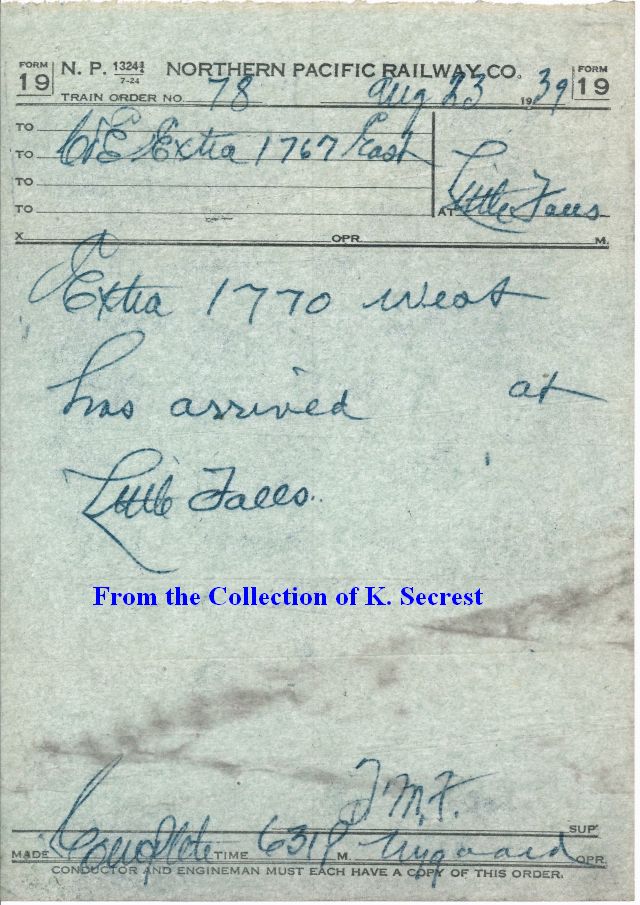 FORM 19 N. P. 1324½ 7-24 NORTHERN PACIFIC RAILWAY CO. FORM 19
TRAIN ORDER NO. 78 Aug 23 1939
TO
TO C&E Extra 1767 East
TO
TO AT Little Falls
X OPR. M.
Extra 1770 West
has arrived at
Little Falls.
From the Collection of K. Secrest
J.M.F. SUP'
MADE Complete TIME 631P M. OPR.
CONDUCTOR AND ENGINEMAN MUST EACH HAVE A COPY OF THIS ORDER.